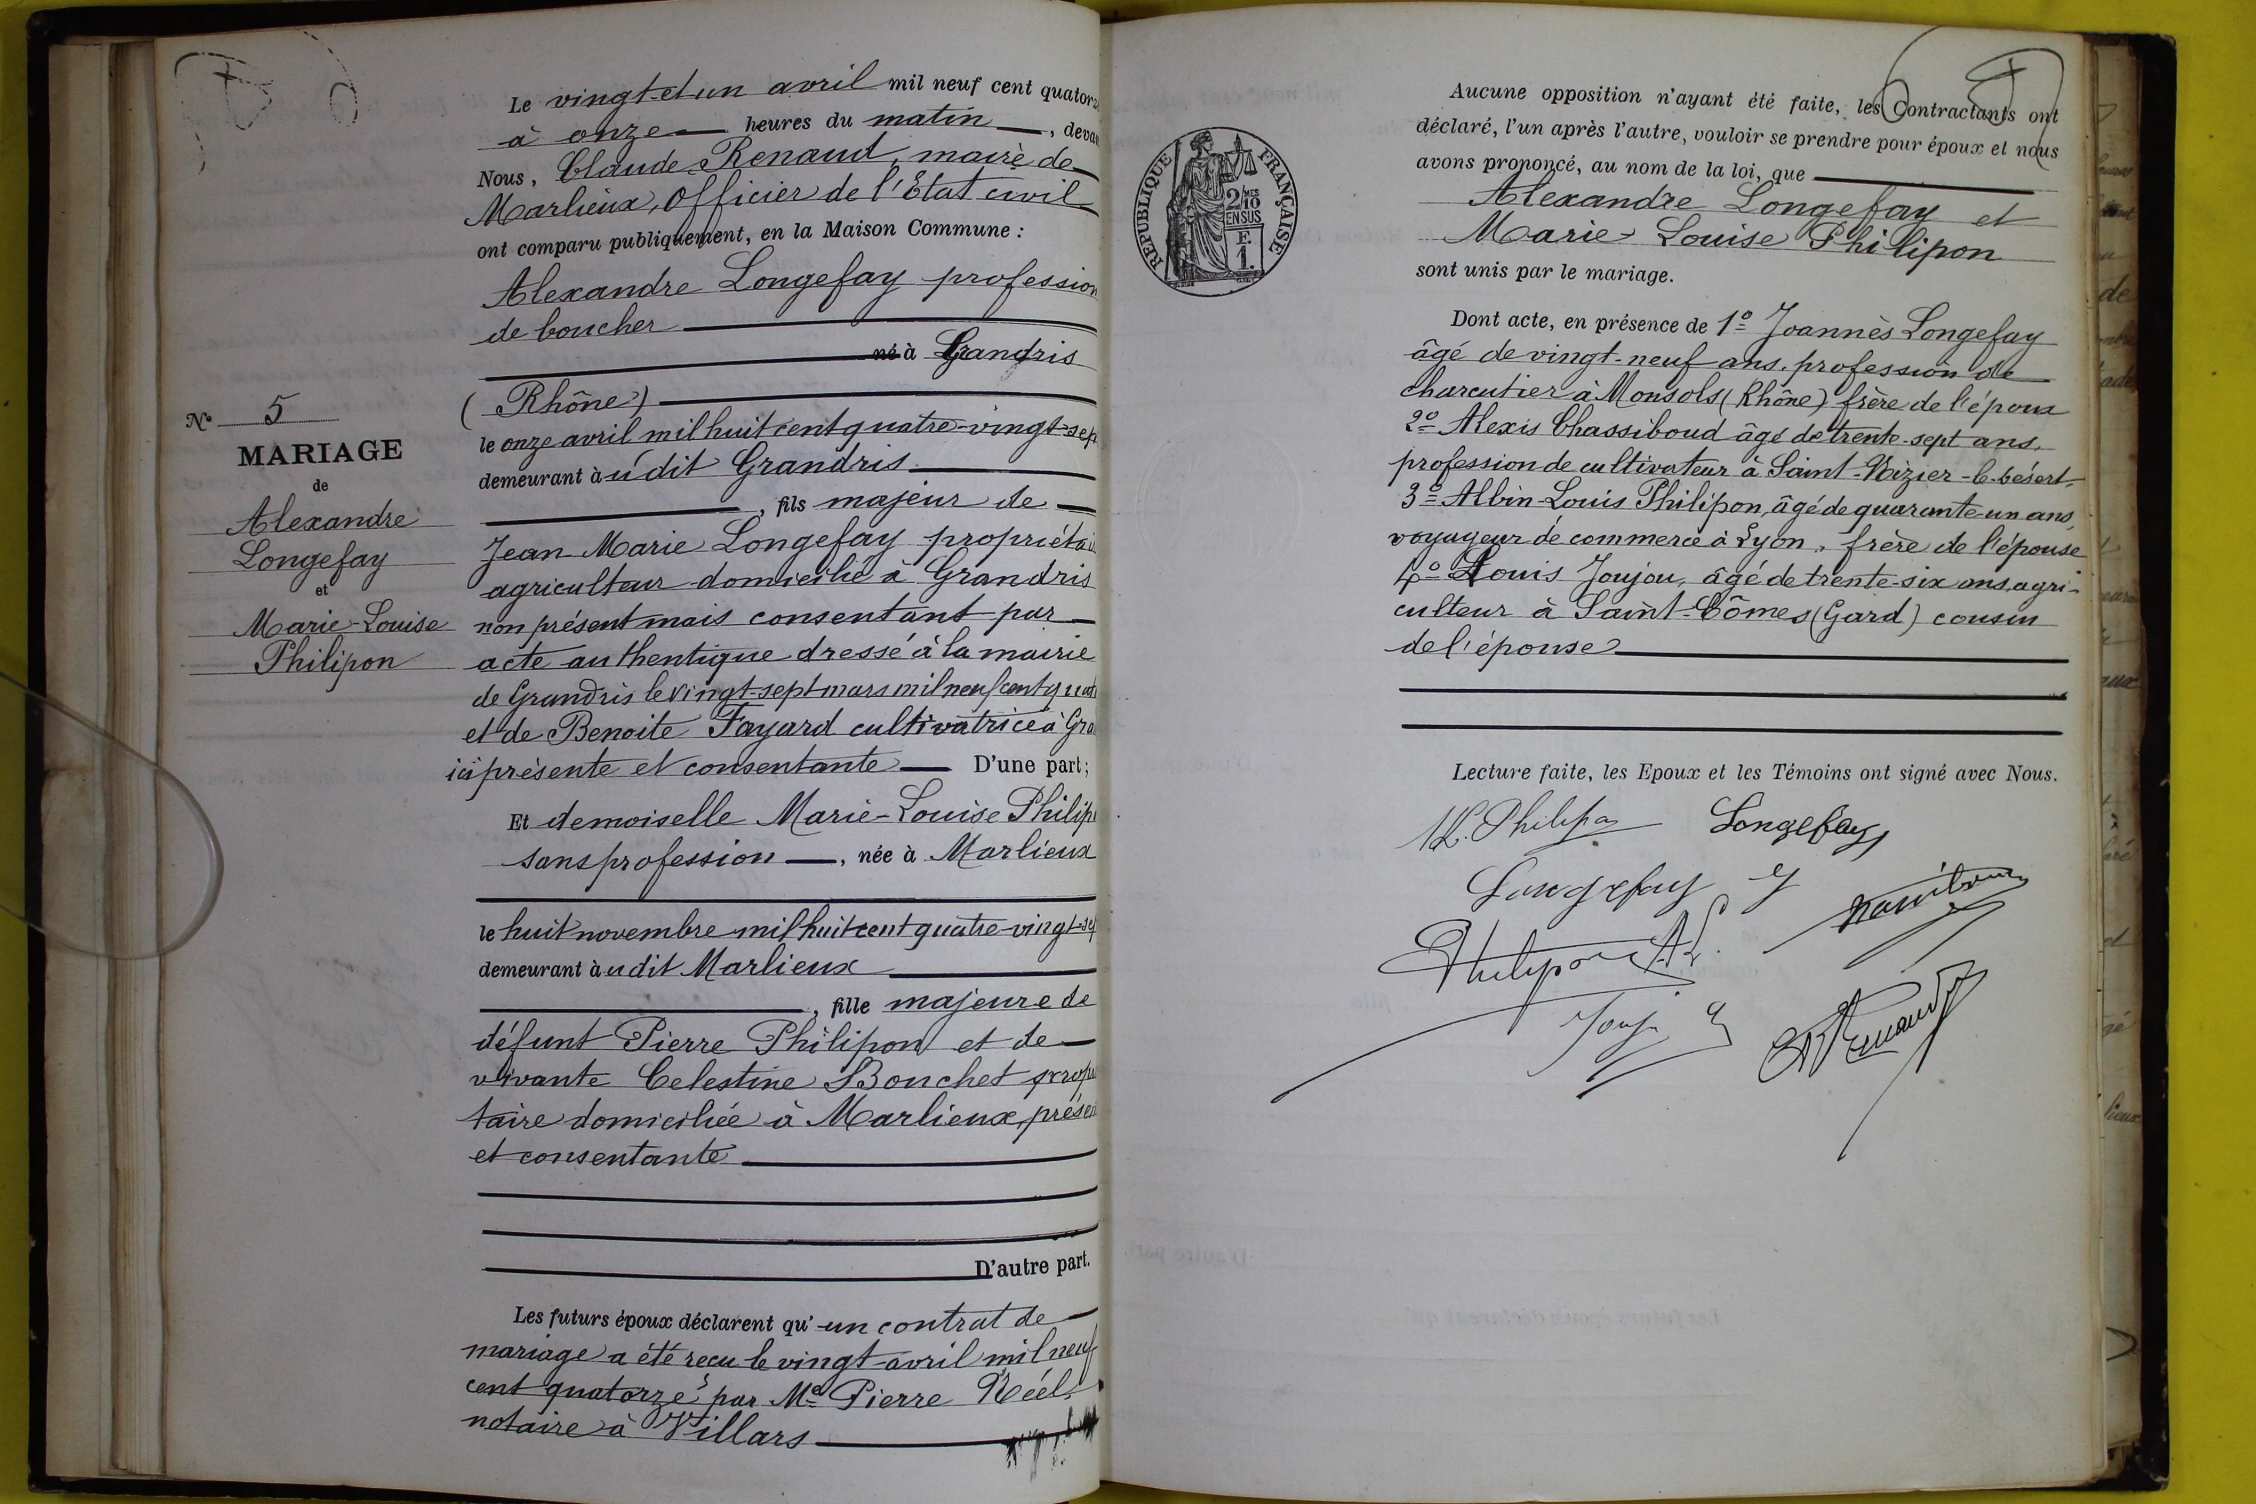 Le vingt-et-un avril mil neuf cent quatorz
à onze heures du matin, devan
Nous, Claude Renaud, maire de
Marlieux, Officier de l'Etat civil
ont comparu publiquement, en la Maison Commune :
Alexandre Longefay profession
de boucher
né à Grandris
(Rhône)
le onze avril mil huit cent quatre-vingt-sep
demeurant à udit Grandris
, fils majeur de
Jean Marie Longefay propriétai
agriculteur domicilié à Grandris
non présent mais consentant par
acte authentique dressé à la mairie
de Grandris le vingt-sept mars mil neuf cent quat
et de Benoite Fayard cultivatrice à Gra
ici présente et consentante D'une part;
Et demoiselle Marie-Louise Philip
sans profession, née à Marlieux
le huit novembre mil huit cent quatre-vingt-sep
demeurant à udit Marlieux
, fille majeure de
défunt Pierre Philipon et de
vivante Celestine Bouchet propri
taire domiciliée à Marlieux, présen
et consentante
D'autre part.
Les futurs époux déclarent qu'un contrat de
mariage a été reçu le vingt avril mil neuf
cent quatorze par Me Pierre Réel
notaire à Villars
N° 5
MARIAGE
de
Alexandre
Longefay
et
Marie-Louise
Philipon
REPUBLIQUE FRANÇAISE
2/10 MES
EN SUS
F.
1.
Aucune opposition n'ayant été faite, les Contractants ont
déclaré, l'un après l'autre, vouloir se prendre pour époux et nous
avons prononcé, au nom de la loi, que
Alexandre Longefay et
Marie-Louise Philipon
sont unis par le mariage.
Dont acte, en présence de 1° Joannès Longefay
âgé de vingt-neuf ans, profession de
charcutier à Monsols (Rhône) frère de l'époux
2° Alexis Chassiboud âgé de trente-sept ans,
profession de cultivateur à Saint-Nizier-le-Désert,
3° Albin-Louis Philipon, âgé de quarante-un ans,
voyageur de commerce à Lyon, frère de l'épouse
4° Louis Joujou, âgé de trente-six ans, agri-
culteur à Saint-Cômes (Gard) cousin
de l'épouse
Lecture faite, les Epoux et les Témoins ont signé avec Nous.
M.L. Philipon Longefay
Longefay J
Philipon A L.
Renaud